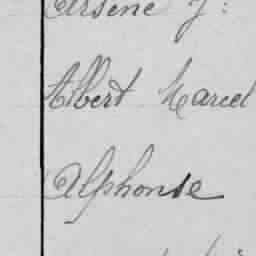 Arsène J:
Albert Marcel
Alphonse